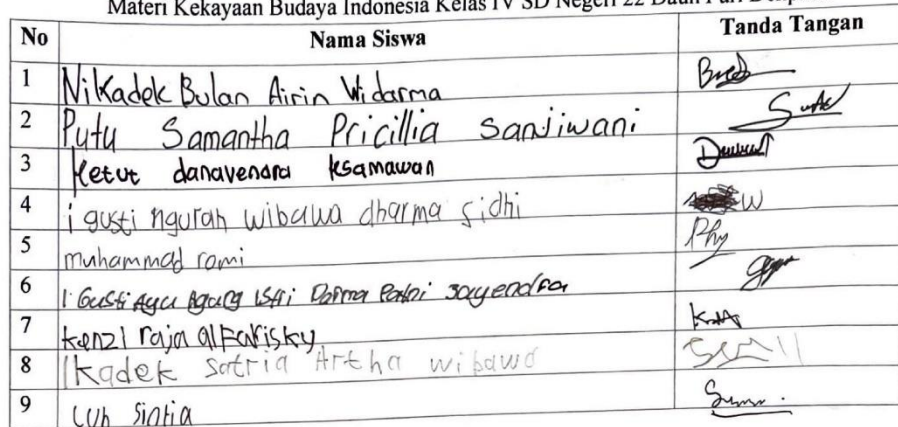 Materi Kekayaan Budaya Indonesia Kelas IV SD Negeri 22 Dauh Puri
No Nama Siswa Tanda Tangan
1 Ni Kadek Bulan Airin Widarma
2 Putu Samantha Pricillia sanjiwani
3 Ketut danavendra ksamawan
4 i gusti ngurah wibawa dharma sidhi
5 muhammad rami
6 I Gusti Ayu Agung Istri Darma Patni Jayendra
7 kenzi raja alFarisky
8 I kadek satria Artha wibawa
9 Luh Sintia